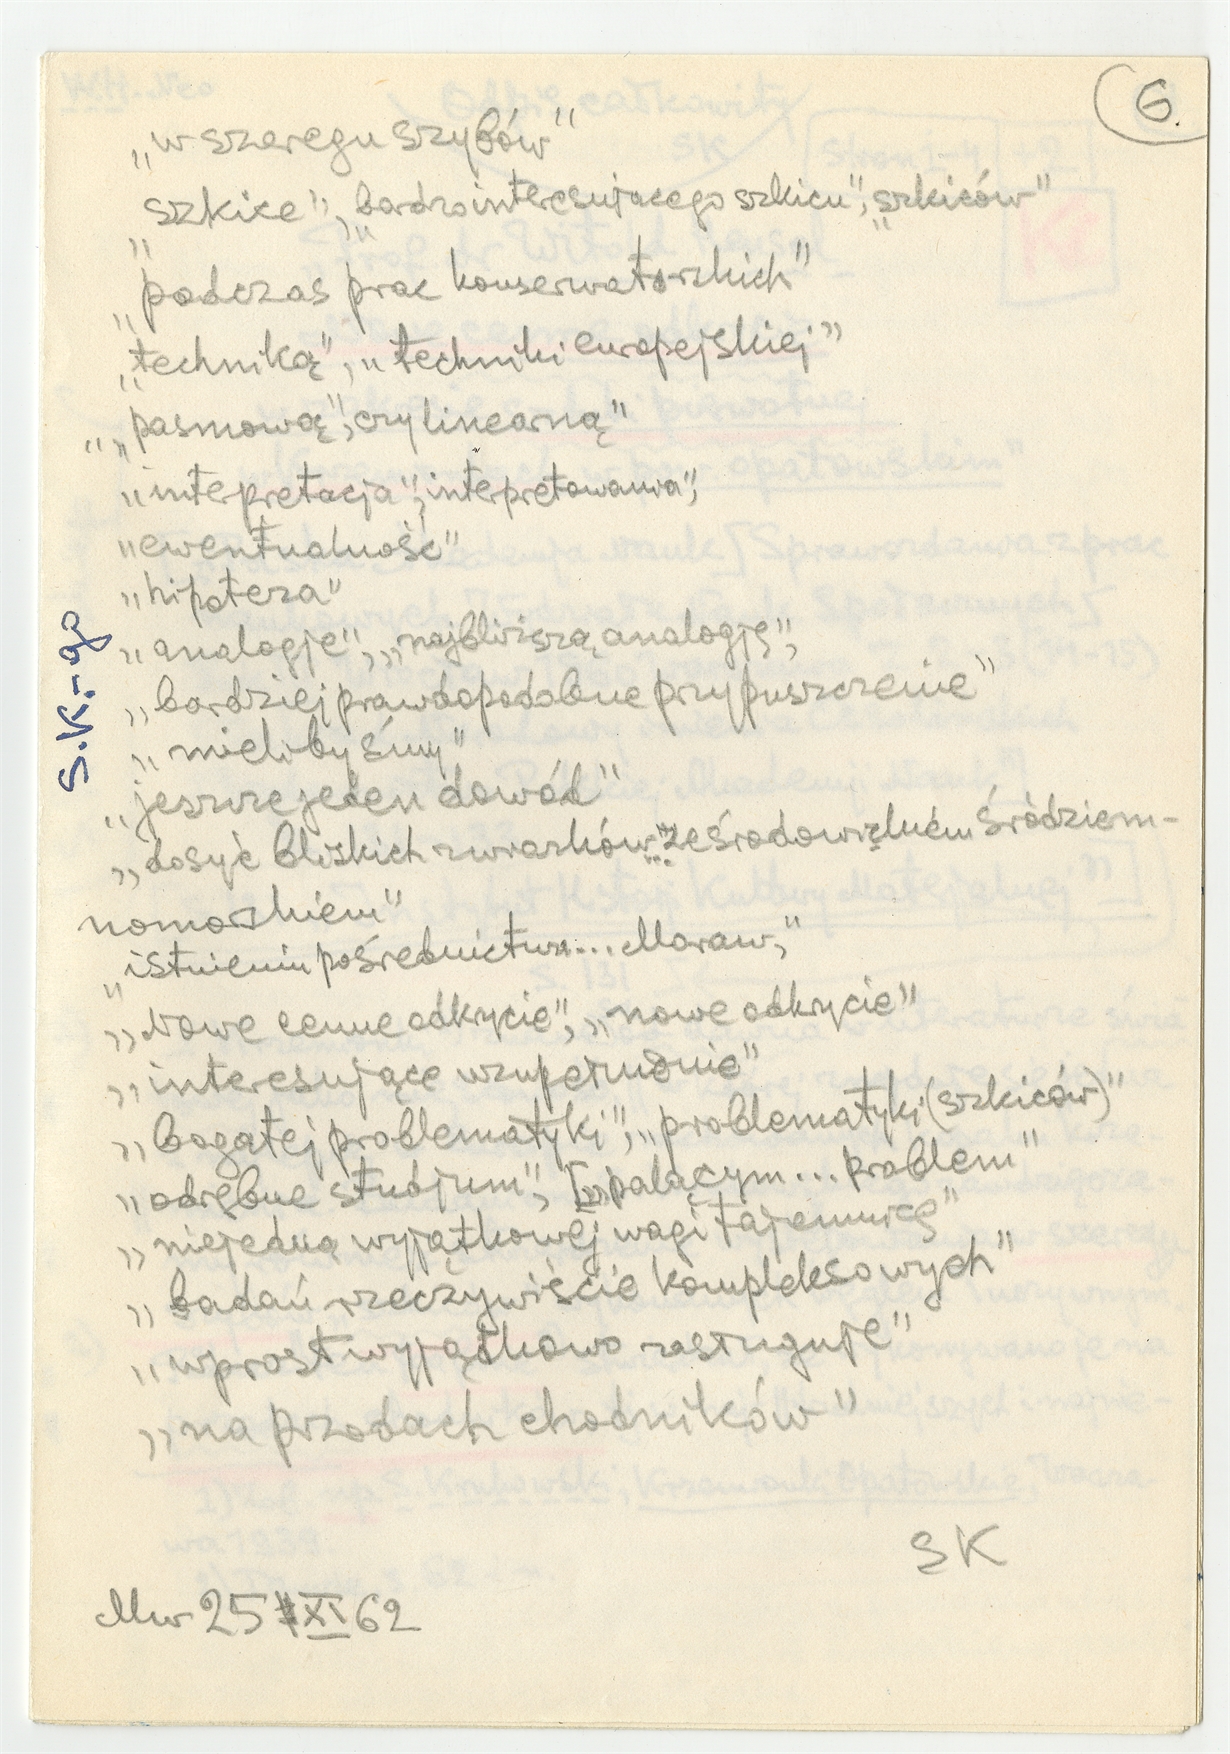 6.
„w szeregu szybów"
„szkice", „bardzo interesującego szkicu", „szkiców"
„podczas prac konserwatorskich"
„techniką", „techniki europejskiej"
„pasmową", czy linearną"
„intepretacja", intepretowania",
„ewentualność"
„hipoteza"
„analogje", „najbliższą analogję",
„bardziej prawdopodobne przypuszczenie"
„mielibyśmy"
„jeszcze jeden dowód"
„dosyć bliskich związków ... ze środowiskiem śródziem-
nomorskiem"
„istnieniu pośrednictwa... Moraw,"
„Nowe cenne odkrycie", „nowe odkrycie"
„interesujące uzupełnienie"
„bogatej problematyki", „problematyki (szkiców)"
„odrębne studjum", [„palącym... problem"
„niejedną wyjątkowej wagi tajemnicę"
„badań rzeczywiście kompleksowych"
„wprost wyjątkowo zasługuje"
„na przodach chodników"
SK
Mw 25 XI 62
S.K.-go